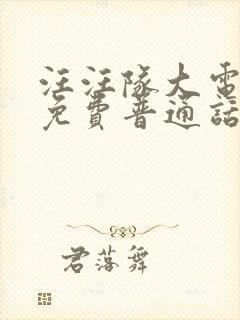 汪汪隊大電
免費普通話
君落舞